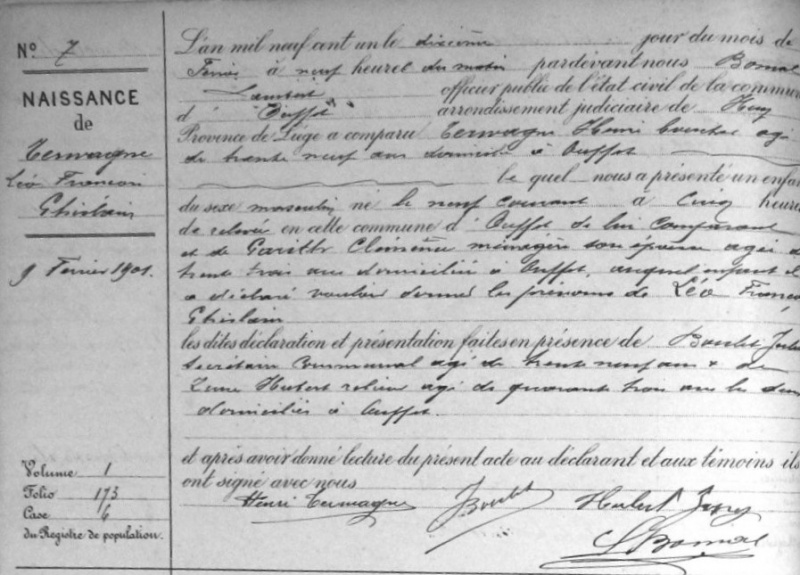 N° 7
NAISSANCE
de
Terwagne
Léo François
Ghislain
9 Fevrier 1901.
Volume 1
Folio 173
Case 6
du Registre de population.
L'an mil neuf cent un le dixième jour du mois de
Fevrier à neuf heures du matin pardevant nous Bonial
Lambert officier public de l'état civil de la commune
d' Ouffet arrondissement judiciaire de Huy
Province de Liége a comparu Terwagne Henri agé
de trente neuf ans domicilié à Ouffet
le quel nous a présenté un enfan
du sexe masculin né le neuf courant à cinq heures
de relevée en cette commune d' Ouffet de lui comparant
et de Clémentine ménagère son épouse agée de
trente trois ans domiciliée à Ouffet, auquel enfant il
a déclaré vouloir donner les prénoms de Léo Franço
Ghislain
les dites déclaration et présentation faites en présence de Boulet Jules
Secrétaire Communal agé de trente neuf ans & de
Hubert agé de quarante trois ans les deux
domiciliés à Ouffet.
et après avoir donné lecture du présent acte au déclarant et aux témoins ils
ont signé avec nous
Henri Terwagne J Boulet Hubert
L Bonial